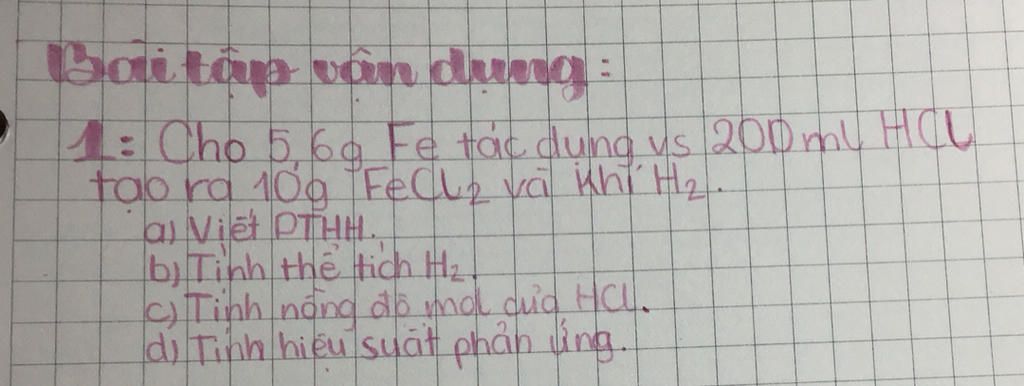 Bài tập vận dụng:
1: Cho 5,6g Fe tác dụng vs 200ml HCl
tạo ra 10g FeCl₂ và khí H₂.
a) Viết PTHH.
b) Tính thể tích H₂.
c) Tính nồng độ mol của HCl.
d) Tính hiệu suất phản ứng.